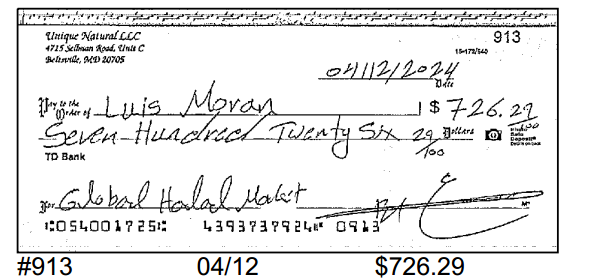 Unique Natural LLC
913
4715 Sellman Road, Unit C
15-172/540
Beltsville, MD 20705
04/12/2024
Date
Pay to the
Order of Luis Moran $ 726.29/100
Seven Hundred Twenty Six 29/100 Dollars
TD Bank
For Global Halal Market
⑆054001725⑆ 4393737924⑈ 0913
#913 04/12 $726.29